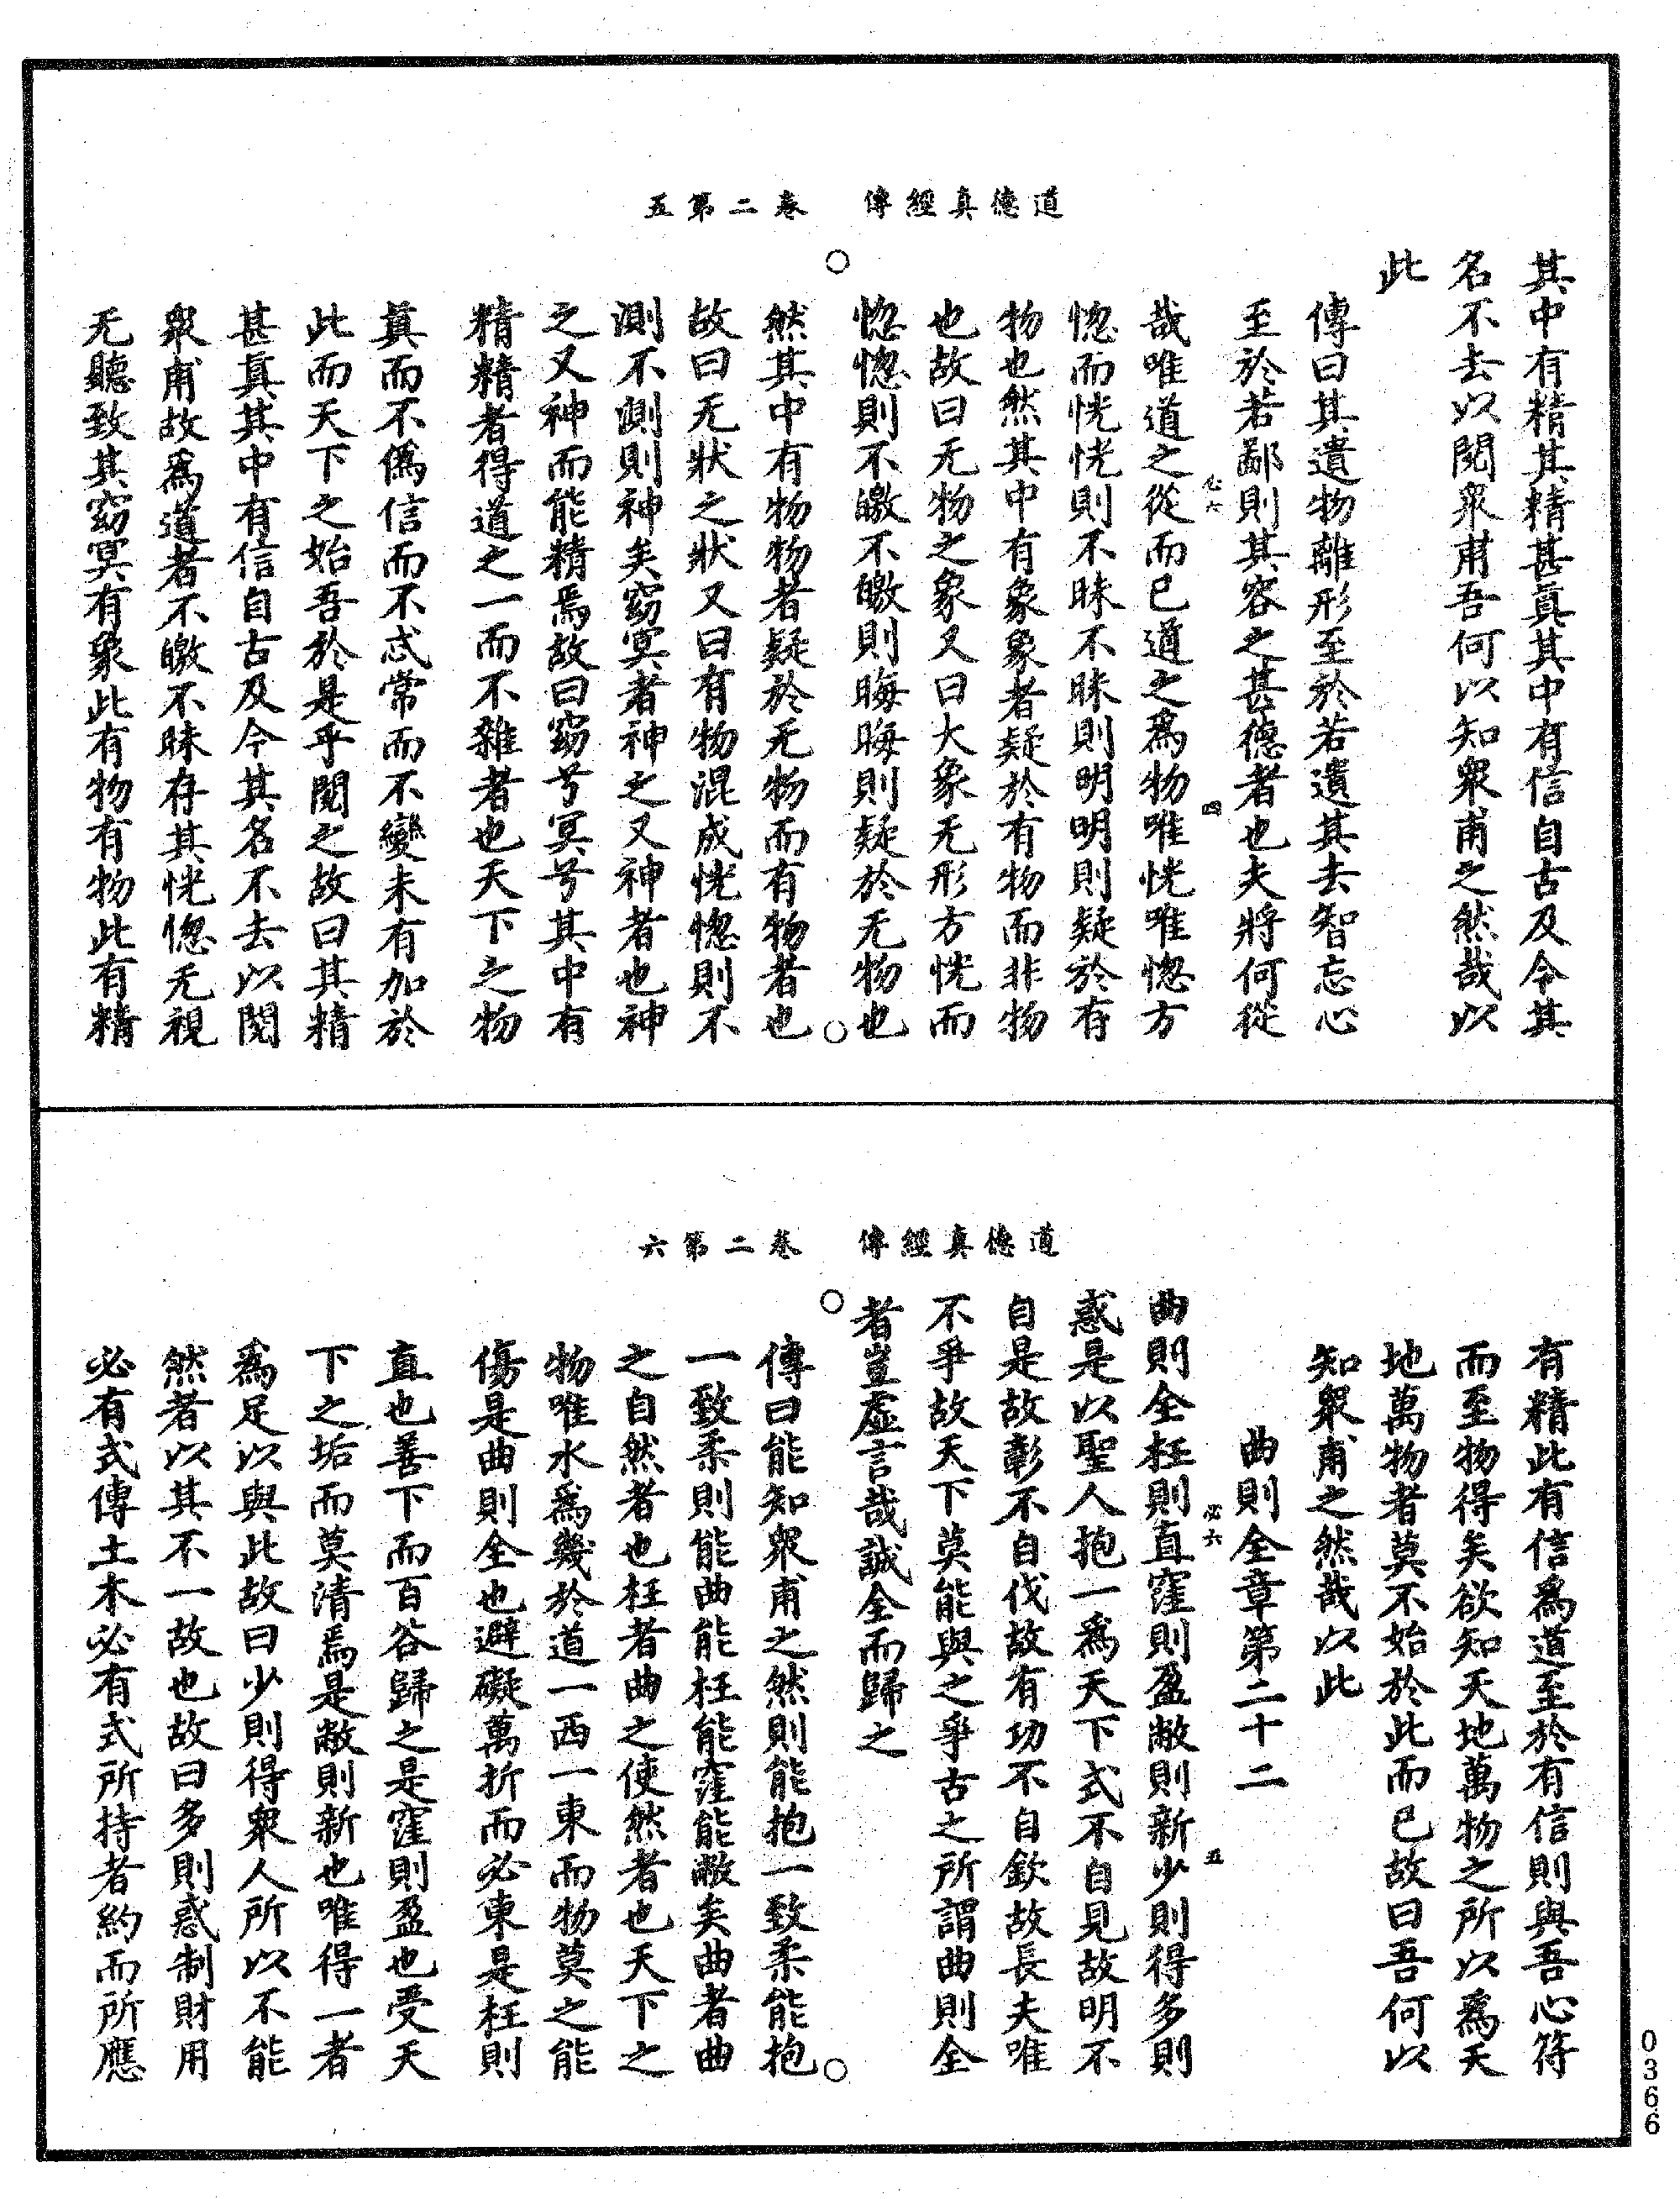 道德真經傳　卷二第五
其中有精其精甚真其中有信自古及今其
名不去以閱衆甫吾何以知衆甫之然哉以
此
傳曰其遺物離形至於若遺其去智忘心
至於若鄙則其容之甚德者也夫將何從
哉唯道之從而已道之爲物唯恍唯惚方
惚而恍恍則不昧不昧則明明則疑於有
物也然其中有象象者疑於有物而非物
也故曰无物之象又曰大象无形方恍而
惚惚則不皦不皦則晦晦則疑於无物也
然其中有物物者疑於无物而有物者也
故曰无狀之狀又曰有物混成恍惚則不
測不測則神矣窈冥者神之又神者也神
之又神而能精焉故曰窈兮冥兮其中有
精精者得道之一而不雜者也天下之物
真而不僞信而不忒常而不變未有加於
此而天下之始吾於是乎閱之故曰其精
甚真其中有信自古及今其名不去以閱
衆甫故爲道者不皦不昧存其恍惚无視
无聽致其窈冥有象此有物有物此有精
道德真經傳　卷二第六
有精此有信爲道至於有信則與吾心符
而至物得矣欲知天地萬物之所以爲天
地萬物者莫不始於此而已故曰吾何以
知衆甫之然哉以此
曲則全章第二十二
必六　五
曲則全枉則直窪則盈敝則新少則得多則
惑是以聖人抱一爲天下式不自見故明不
自是故彰不自伐故有功不自欽故長夫唯
不爭故天下莫能與之爭古之所謂曲則全
者豈虛言哉誠全而歸之
傳曰能知衆甫之然則能抱一致柔能抱
一致柔則能曲能枉能窪能敝矣曲者曲
之自然者也枉者曲之使然者也天下之
物唯水爲幾於道一西一東而物莫之能
傷是曲則全也避礙萬折而必東是枉則
直也善下而百谷歸之是窪則盈也受天
下之垢而莫清焉是敝則新也唯得一者
爲足以與此故曰少則得衆人所以不能
然者以其不一故也故曰多則惑制財用
必有式傳土木必有式所持者約而所應
0366